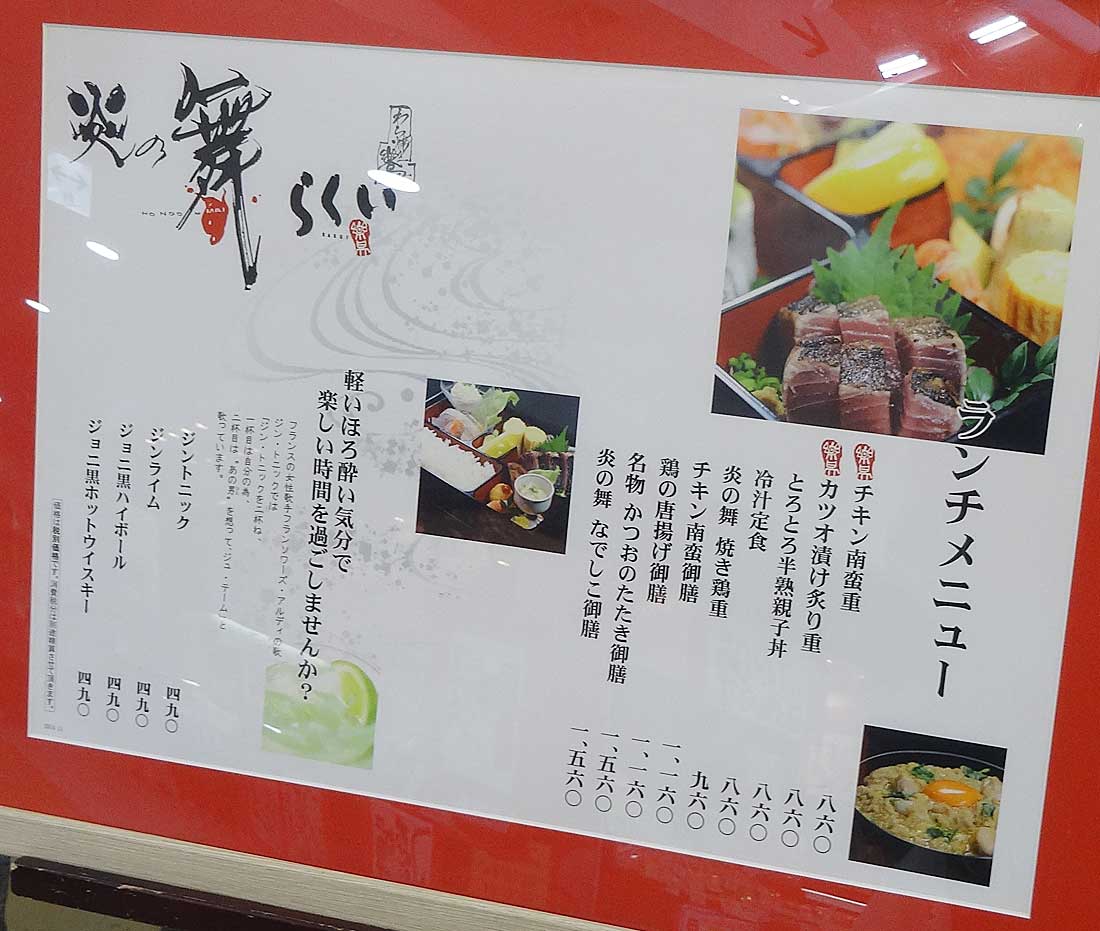 炎の舞
HO NOO MAI
らくい
RAKUI
樂亰
ランチメニュー
樂亰 チキン南蛮重 八六〇
樂亰 カツオ漬け炙り重 八六〇
とろとろ半熟親子丼 八六〇
冷汁定食 八六〇
炎の舞 焼き鶏重 九六〇
チキン南蛮御膳 一、一六〇
鶏の唐揚げ御膳 一、一六〇
名物 かつおのたたき御膳 一、五六〇
炎の舞 なでしこ御膳 一、五六〇
軽いほろ酔い気分で
楽しい時間を過ごしませんか？
フランスの女性歌手フランソワーズ・アルディの歌
ジン・トニックでは
「ジン・トニックを二杯ね、
一杯目は自分の為、
二杯目は“あの男”を想って、ジュ・テーム」と
歌っています。
ジントニック 四九〇
ジンライム 四九〇
ジョニ黒ハイボール 四九〇
ジョニ黒ホットウイスキー 四九〇
価格は税別価格です。消費税分は別途精算させて頂きます。